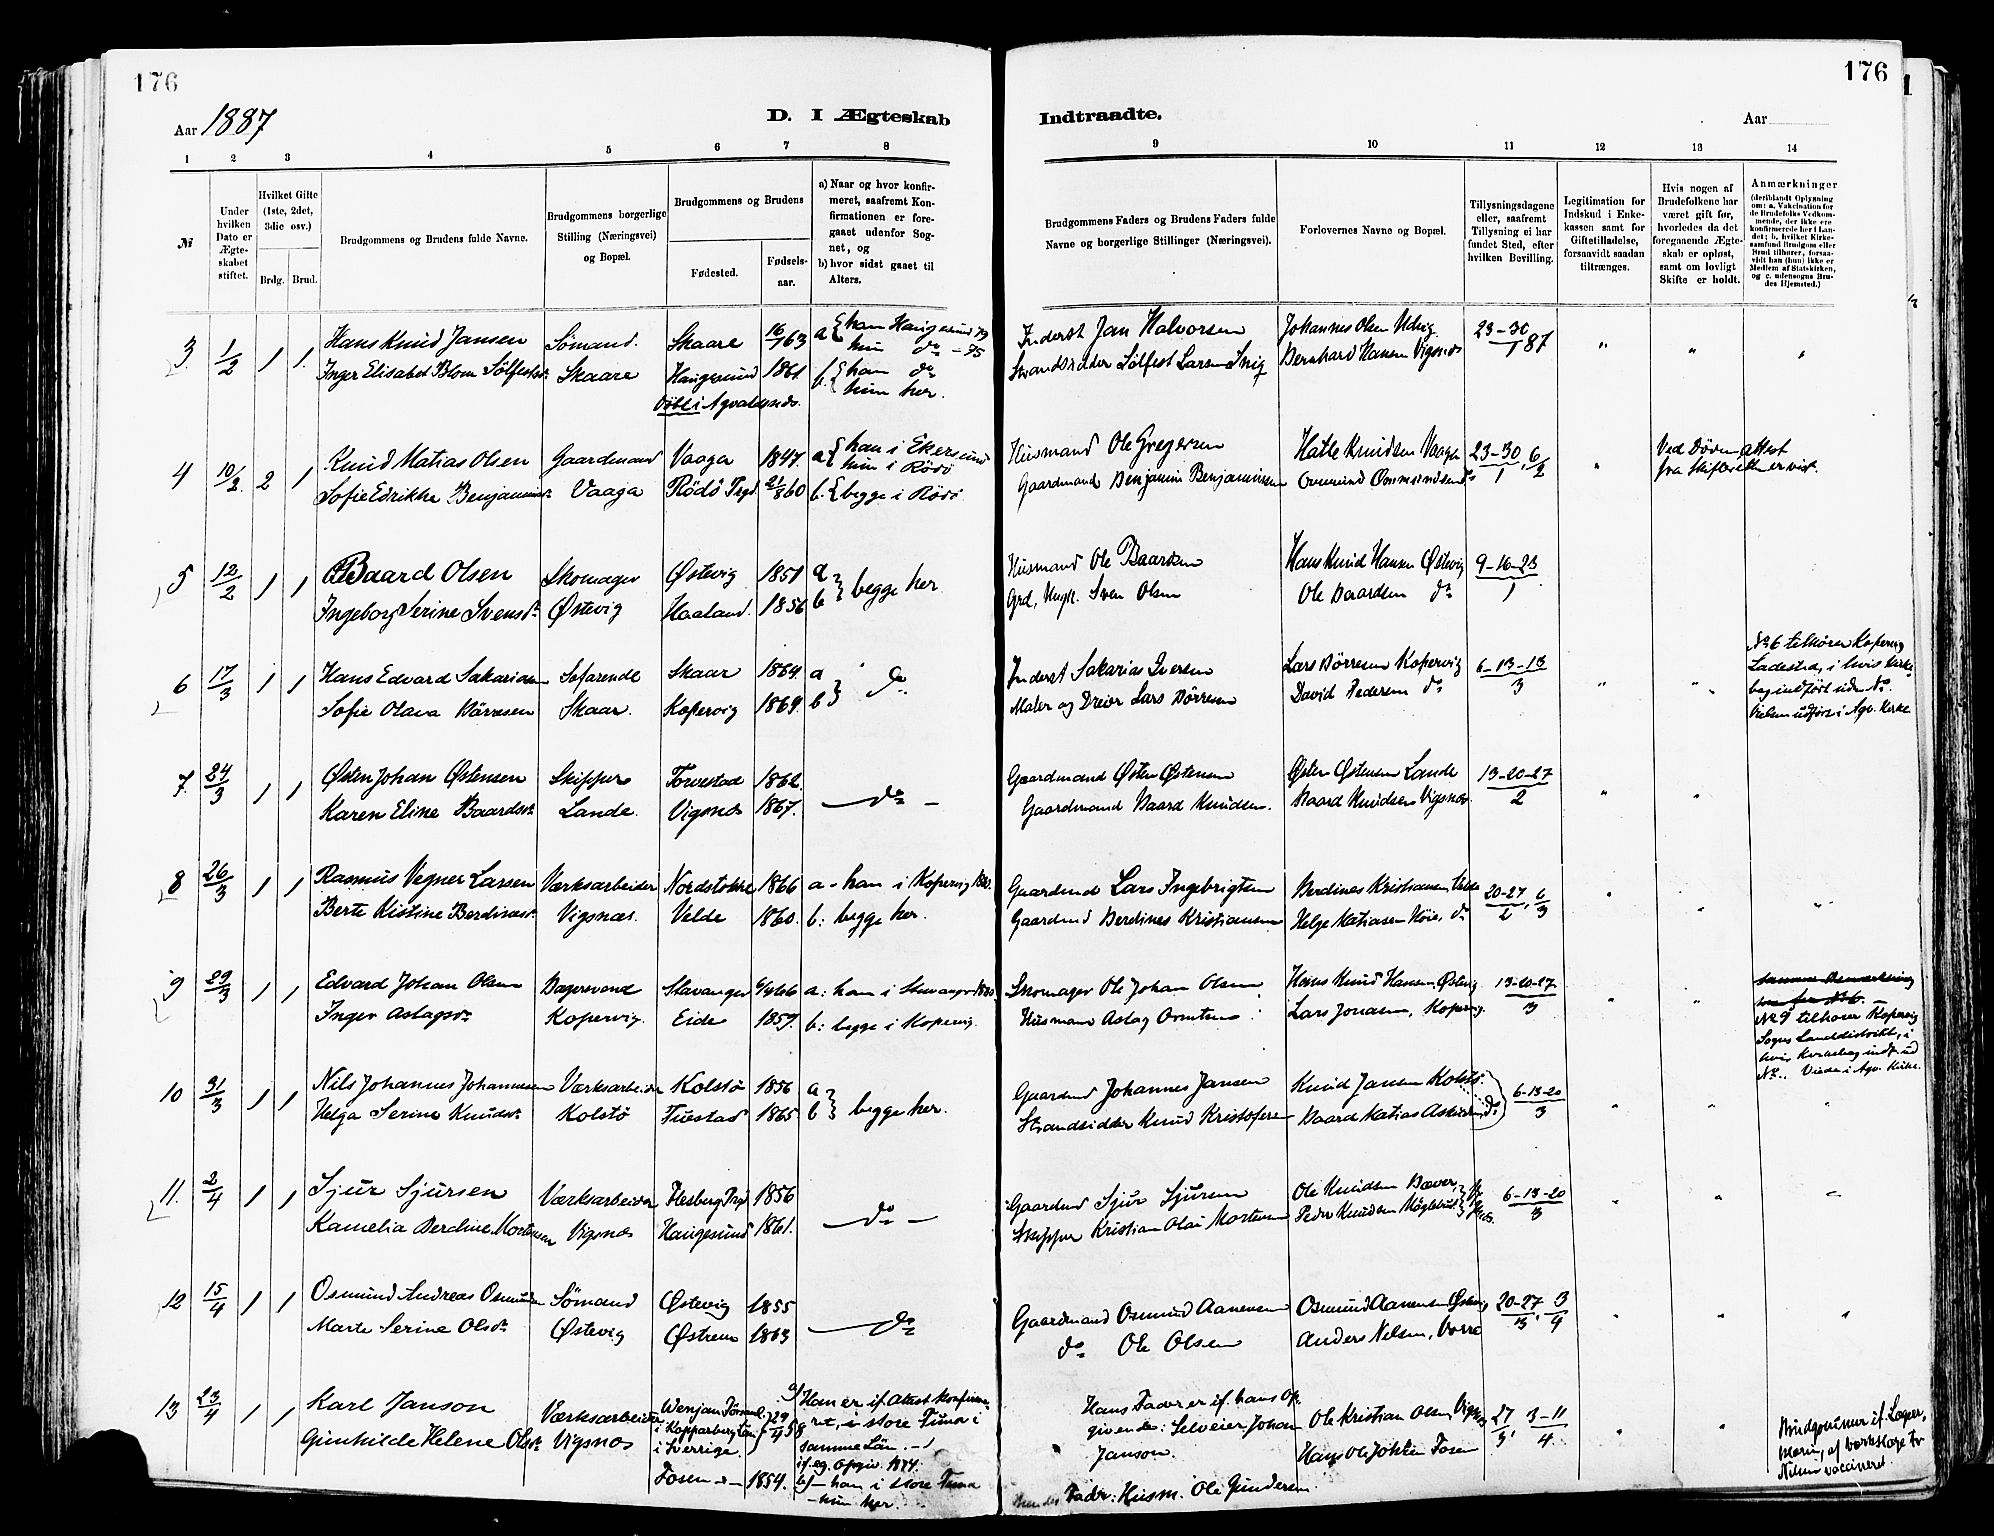 176
176
Aar 1887
D. I Ægteskab
Indtraadte.
Aar
1 2 3 4 5 6 7 8
9 10 11 12 13 14
№
Under hvilken Dato er Ægteskabet stiftet.
Hvilket Gifte (1ste, 2det, 3die osv.)
Brdg. Brud.
Brudgommens og Brudens fulde Navne.
Brudgommens borgerlige Stilling (Næringsvei) og Bopæl.
Brudgommens og Brudens
Fødested.
Fødselsaar.
a) Naar og hvor konfirmeret, saafremt Konfirmationen er foregaaet udenfor Sognet, og
b) hvor sidst gaaet til Alters.
Brudgommens Faders og Brudens Faders fulde Navne og borgerlige Stillinger (Næringsvei).
Forlovernes Navne og Bopæl.
Tillysningsdagene eller, saafremt Tillysning ei har fundet Sted, efter hvilken Bevilling.
Legitimation for Indskud i Enkekassen samt for Giftetilladelse, forsaavidt saadan tiltrænges.
Hvis nogen af Brudefolkene har været gift før, hvorledes da det foregaaende Ægteskab er opløst, samt om lovligt Skifte er holdt.
Anmærkninger (deriblandt Oplysning om: a. Vakcination for de Brudefolks Vedkommende, der ikke ere konfirmerede her i Landet; b. hvilket Kirkesamfund Brudgom eller Brud tilhører, forsaavidt han (hun) ikke er Medlem af Statskirken, og c. udensogns Brudes Hjemsted.)
3. 1/2 1 1. Hans Knud Jansen Sømand. Skaare 16/1 63 a { han Haugesund 79
hun do - 75
Inger Elisabet Blom Sølfestsd. Skaare Haugesund 1861 b. { han do
hun her.
døbt i Agvaldsnes.
Inderst Jan Halvorsen Johannes Olsen Udvig 23-30/1 87 " " "
Strandsidder Sølfest Larsen Bernhard Hansen Vigsnes
4 10/2. 2 1 Knud Matias Olsen Gaardmand Vaaga 1847. a { han i Ekersund
hun i Rødø
Sofie Edrikke Benjaminsd. Vaaga Rødø Prgd. 21/8 60 b. { begge i Rødø
Husmand Ole Gregersen Hatle Knudsen Vaaga 23-30/1, 6/2 " Ved Døden attest
Gaardmand Benjamin Benjaminsen Ommund Ommundsen do fra Skifteretten er vist.
5 12/2 1 1 Baard Olsen Skomager Østevig 1851 a
Ingeborg Serine Svensd. Østevig Haaland. 1856 b } begge her
Husmand Ole Baardsen Hans Knud Hansen Østevig 9-16-23/1
Grd, Ungk. Sven Olsen Ole Baardsen do
6 17/3 1 1 Hans Edvard Sakariasen Søfarende Skaar 1864. a
Sofie Olava Børresen Skaar. Kopervig 1864. b } do
Inderst Sakarias Iversen Lars Børresen Kopervig 6-13-13/3 " "
Maler og Dreier Lars Børresen David Pedersen do
No 6 tilhører Kopervig
Ladested, i hvis Kirke-
bog indført uden No.
Vielsen udført i Agv. Kirke
7. 24/3 1 1 Østen Johan Østensen Skipper Torvestad 1862.
Karen Eline Baardsd. Lande. Vigsnes 1867. — do —
Gaardmand Østen Østensen Østen Østensen Lande 13-20-27/2 " "
Gaardmand Baard Knudsen. Baard Knudsen Vigsnes.
8 26/3 1 1 Rasmus Vegner Larsen Værksarbeider Nordstokke 1866 a - han i Kopervig
Berte Kistine Berdinesd. Vigsnæs. Velde 1860. b: begge her.
Gaardmd Lars Ingebrigtsen Berdines Kristiansen Velde 20-27/2, 6/3 " " "
Gaardmd Berdines Kristiansen Helge Matiasen Høie, do
9 29/3 1 1 Edvard Johan Olsen Bagersvend Stavanger a: han i Stavanger
Inger Aslagsd. Kopervig. Eide 1857. b: begge i Kopervig.
Skomager Ole Johan Olsen Hans Knud Hansen, Østevig 13-20-27/3 " "
Husmann Aslag Lars Jonasen, Kopervig.
No 9 tilhører Kopervig
Sogns Landdistrikt, i
hvis Kirkebog indf. ud
No. Viede i Agv. Kirke.
10 31/3 1 1 Nils Johannes Johannesen Værksarbeider Kolstø 1856 a
Helga Serine Knudsd. Kolstø Tuestad 1865 b } begge her.
Gaardmd Johannes Jansen Knud Jansen Kolstø. 6-13-20/3 " " "
Strandsidder Knud Kristofersen Baard Matias do
11. 2/4 1 1 Sjur Sjursen Værksarbeider Flesberg Prgd 1856
Kamelia Berdine Mortensen Vigsnæs Haugesund 1861. — do —
Gaardmd Sjur Sjursen Ole Knudsen Bæver, 6-13-20/3 " " "
Skipper Kristian Olai Mortensen Peder Knudsen
12 15/4 1 1 Osmund Andreas Osmundsen Sømand Østevig 1855
Marte Serine Olsd. Østevig Østrem 1863 — do
Gaardmand Osmund Aanensen Osmund Aanensen Østevig 20-27/3, 3/4 " " "
do Ole Olsen Anders Nilsen, Vorre
13 23/4 1 1 Karl Janson Værksarbeider Wenjan Församl. i Kopparberg Län i Sverrige. 29/4 58
Gunhilde Helene Olsd. Vigsnæs
Fosen 1854.
a) Han er if. Attest konfirme-
ret i store Tuna i
samme Län. -
if. eg. Opgiv. 1874.
b) - han i store Tuna
- hun her.
Hans Fader er if. hans Op-
givende: Selveier Johan
Janson.
Hendes Fader: Husm. Ole Gundersen.
Ole Kristian Olsen, Vigsnes 27/3, 3-11/4 " "
Hans Ole Fosen
Brudgommen if. Lægeattest
vaccineret.